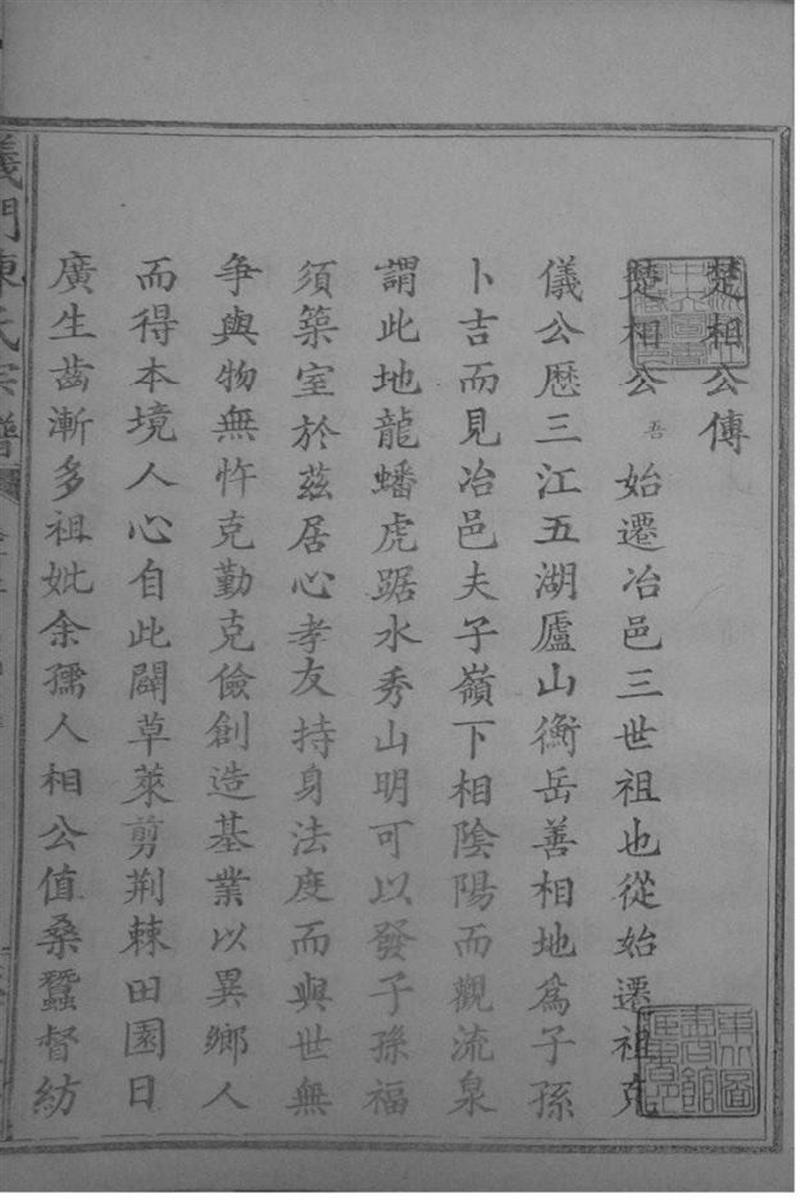 楚相公傳
楚相公吾始遷冶邑三世祖也從始遷祖克
儀公歷三江五湖廬山衡岳善相地爲子孫
卜吉而見冶邑夫子嶺下相陰陽而觀流泉
謂此地龍蟠虎踞水秀山明可以發子孫福
須築室於茲居心孝友持身法度而與世無
爭與物無忤克勤克儉創造基業以異鄉人
而得本境人心自此闢草萊剪荆棘田園日
廣生齒漸多祖妣余孺人相公值桑蠶督紡
義門陳氏宗譜